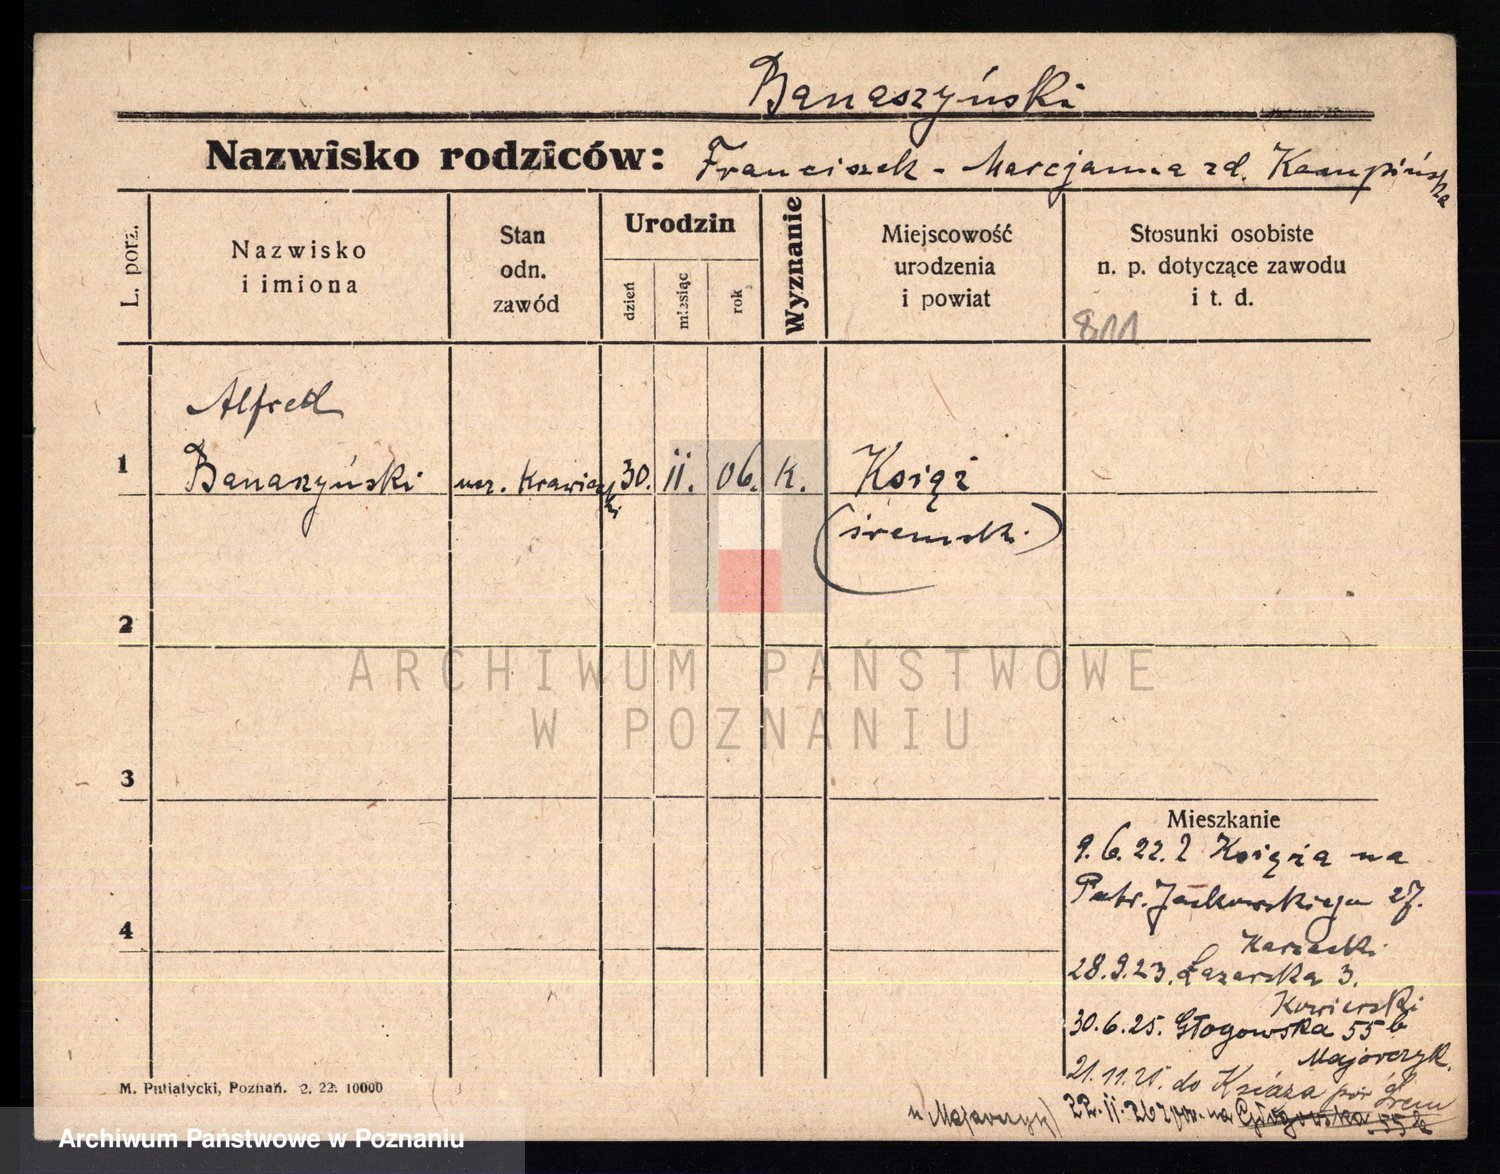 Banaszyński
Nazwisko rodziców: Franciszek - Marcjanna zd. Kempińska
L. porz.
Nazwisko
i imiona
Stan
odn.
zawód
Urodzin
dzień
miesiąc
rok
Wyznanie
Miejscowość
urodzenia
i powiat
Stosunki osobiste
n. p. dotyczące zawodu
i t. d.
811
Alfred
1 Banaszyński ucz. Krawiecki 30. II. 06. K. Książ
(śremski)
2
3
4
Mieszkanie
9.6.22. z Książa na
Patr. Jackowskiego 27.
28.9.23. Łazarska 3.
Kowierski
30.6.25. Głogowska 55b
Majorczyk.
21.11.25. do Książa pow Śrem
22.II.26 pow. na Głogowska 55b
u Majorczyk
M. Putiatycki, Poznań. 2. 22. 10000
ARCHIWUM PAŃSTWOWE
W POZNANIU
Archiwum Państwowe w Poznaniu